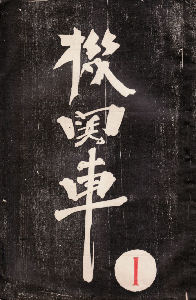 機関車
1